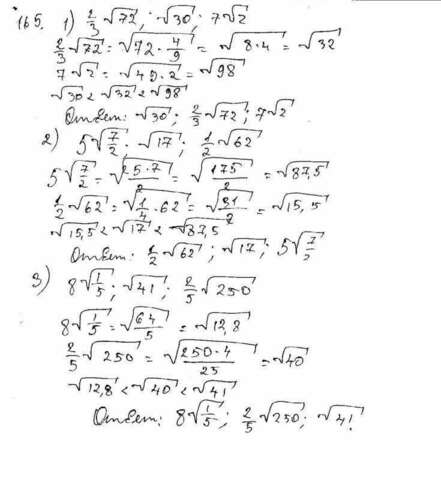 165. 1) 2/3 √72; √30; 7√2
2/3 √72 = √(72 · 4/9) = √(8·4) = √32
7√2 = √(49·2) = √98
√30 < √32 < √98
Ответ: √30; 2/3 √72; 7√2
2) 5√(7/2); √17; 1/2 √62
5√(7/2) = √((25·7)/2) = √(175/2) = √87,5
1/2 √62 = √(1/4 · 62) = √(31/2) = √15,5
√15,5 < √17 < √87,5
Ответ: 1/2 √62; √17; 5√(7/2)
3) 8√(1/5); √41; 2/5 √250
8√(1/5) = √(64/5) = √12,8
2/5 √250 = √((250·4)/25) = √40
√12,8 < √40 < √41
Ответ: 8√(1/5); 2/5 √250; √41.